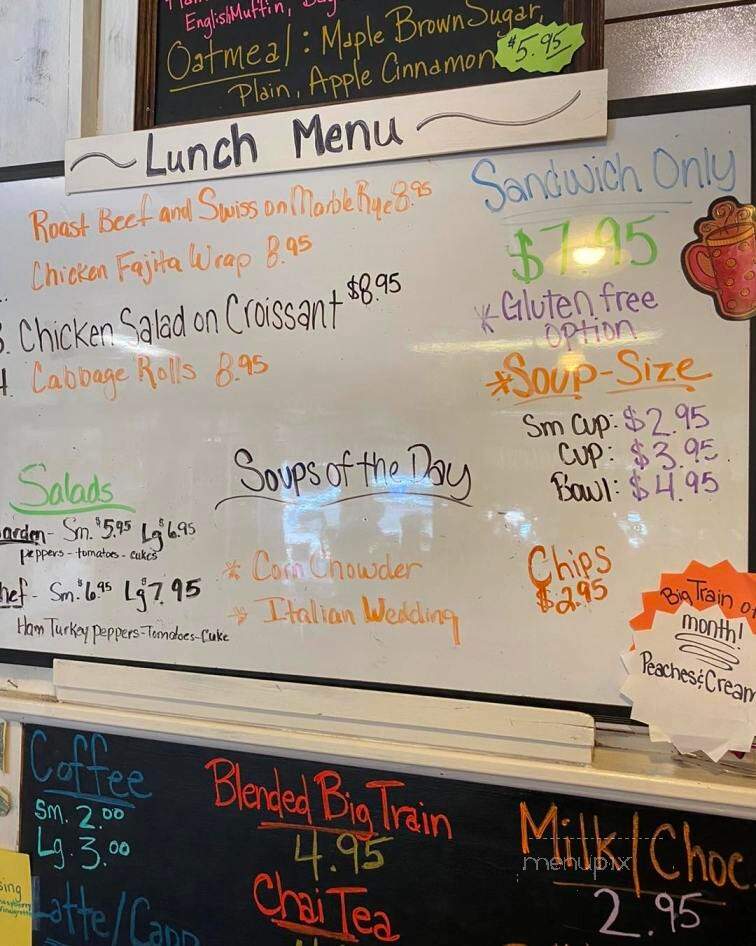 English Muffin,
Oatmeal: Maple Brown Sugar,
Plain, Apple Cinnamon
$5.95
Lunch Menu
Roast Beef and Swiss on Marble Rye 8.95
Chicken Fajita Wrap 8.95
3. Chicken Salad on Croissant $8.95
4. Cabbage Rolls 8.95
Sandwich Only
$7.95
*Gluten free
option
*Soup-Size
Sm Cup: $2.95
Cup: $3.95
Bowl: $4.95
Salads
arden - Sm. $5.95 Lg $6.95
peppers - tomatoes - cukes
hef - Sm. $6.95 Lg $7.95
Ham Turkey peppers-Tomatoes-Cuke
Soups of the Day
* Corn Chowder
* Italian Wedding
Chips
$2.95
Big Train of
month!
Peaches & Cream
Coffee
Sm. 2.00
Lg. 3.00
Latte/Capp
Blended Big Train
4.95
Chai Tea
Milk/Choc
2.95
menupix
sing